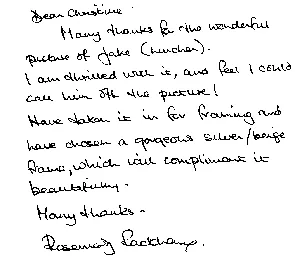 Dear Christine
Many thanks for the wonderful
picture of Jake (lurcher).
I am thrilled with it, and feel I could
call him off the picture!
Have taken it in for framing and
have chosen a gorgeous silver/beige
frame, which will compliment it
beautifully.
Many thanks.
Rosemary